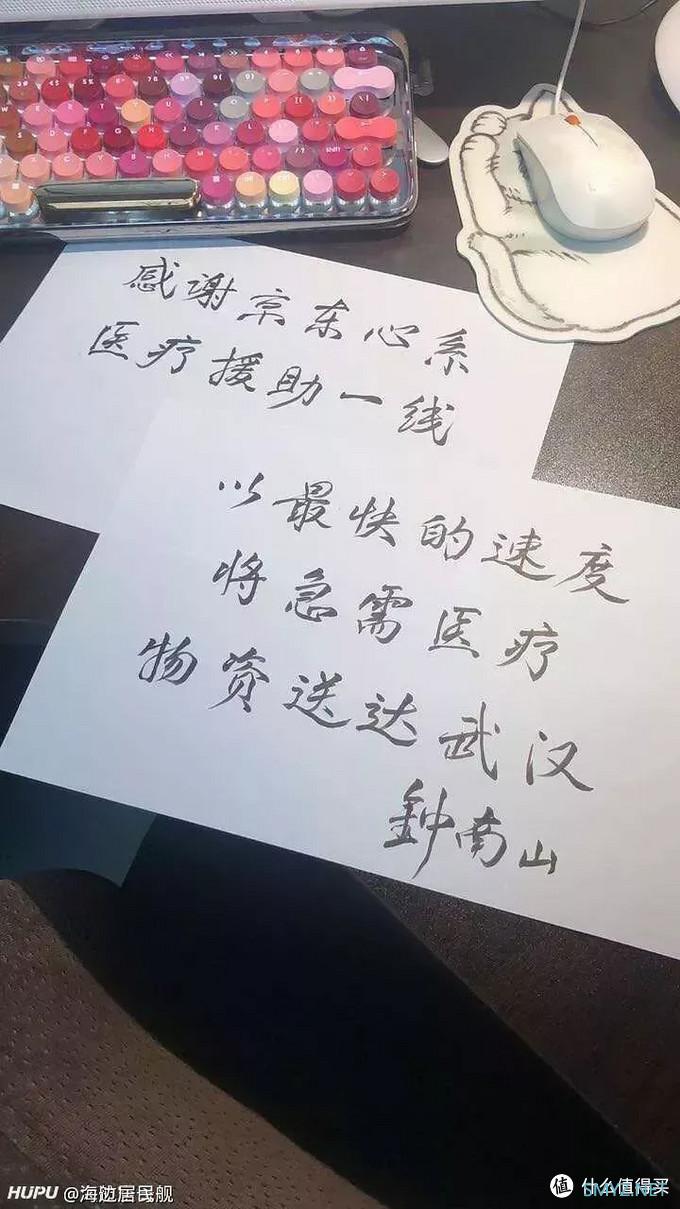 感谢京东心系
医疗援助一线
以最快的速度
将急需医疗
物资送达武汉
鍾南山
HUPU @海边居民舰
值 什么值得买
SMYZ.NET